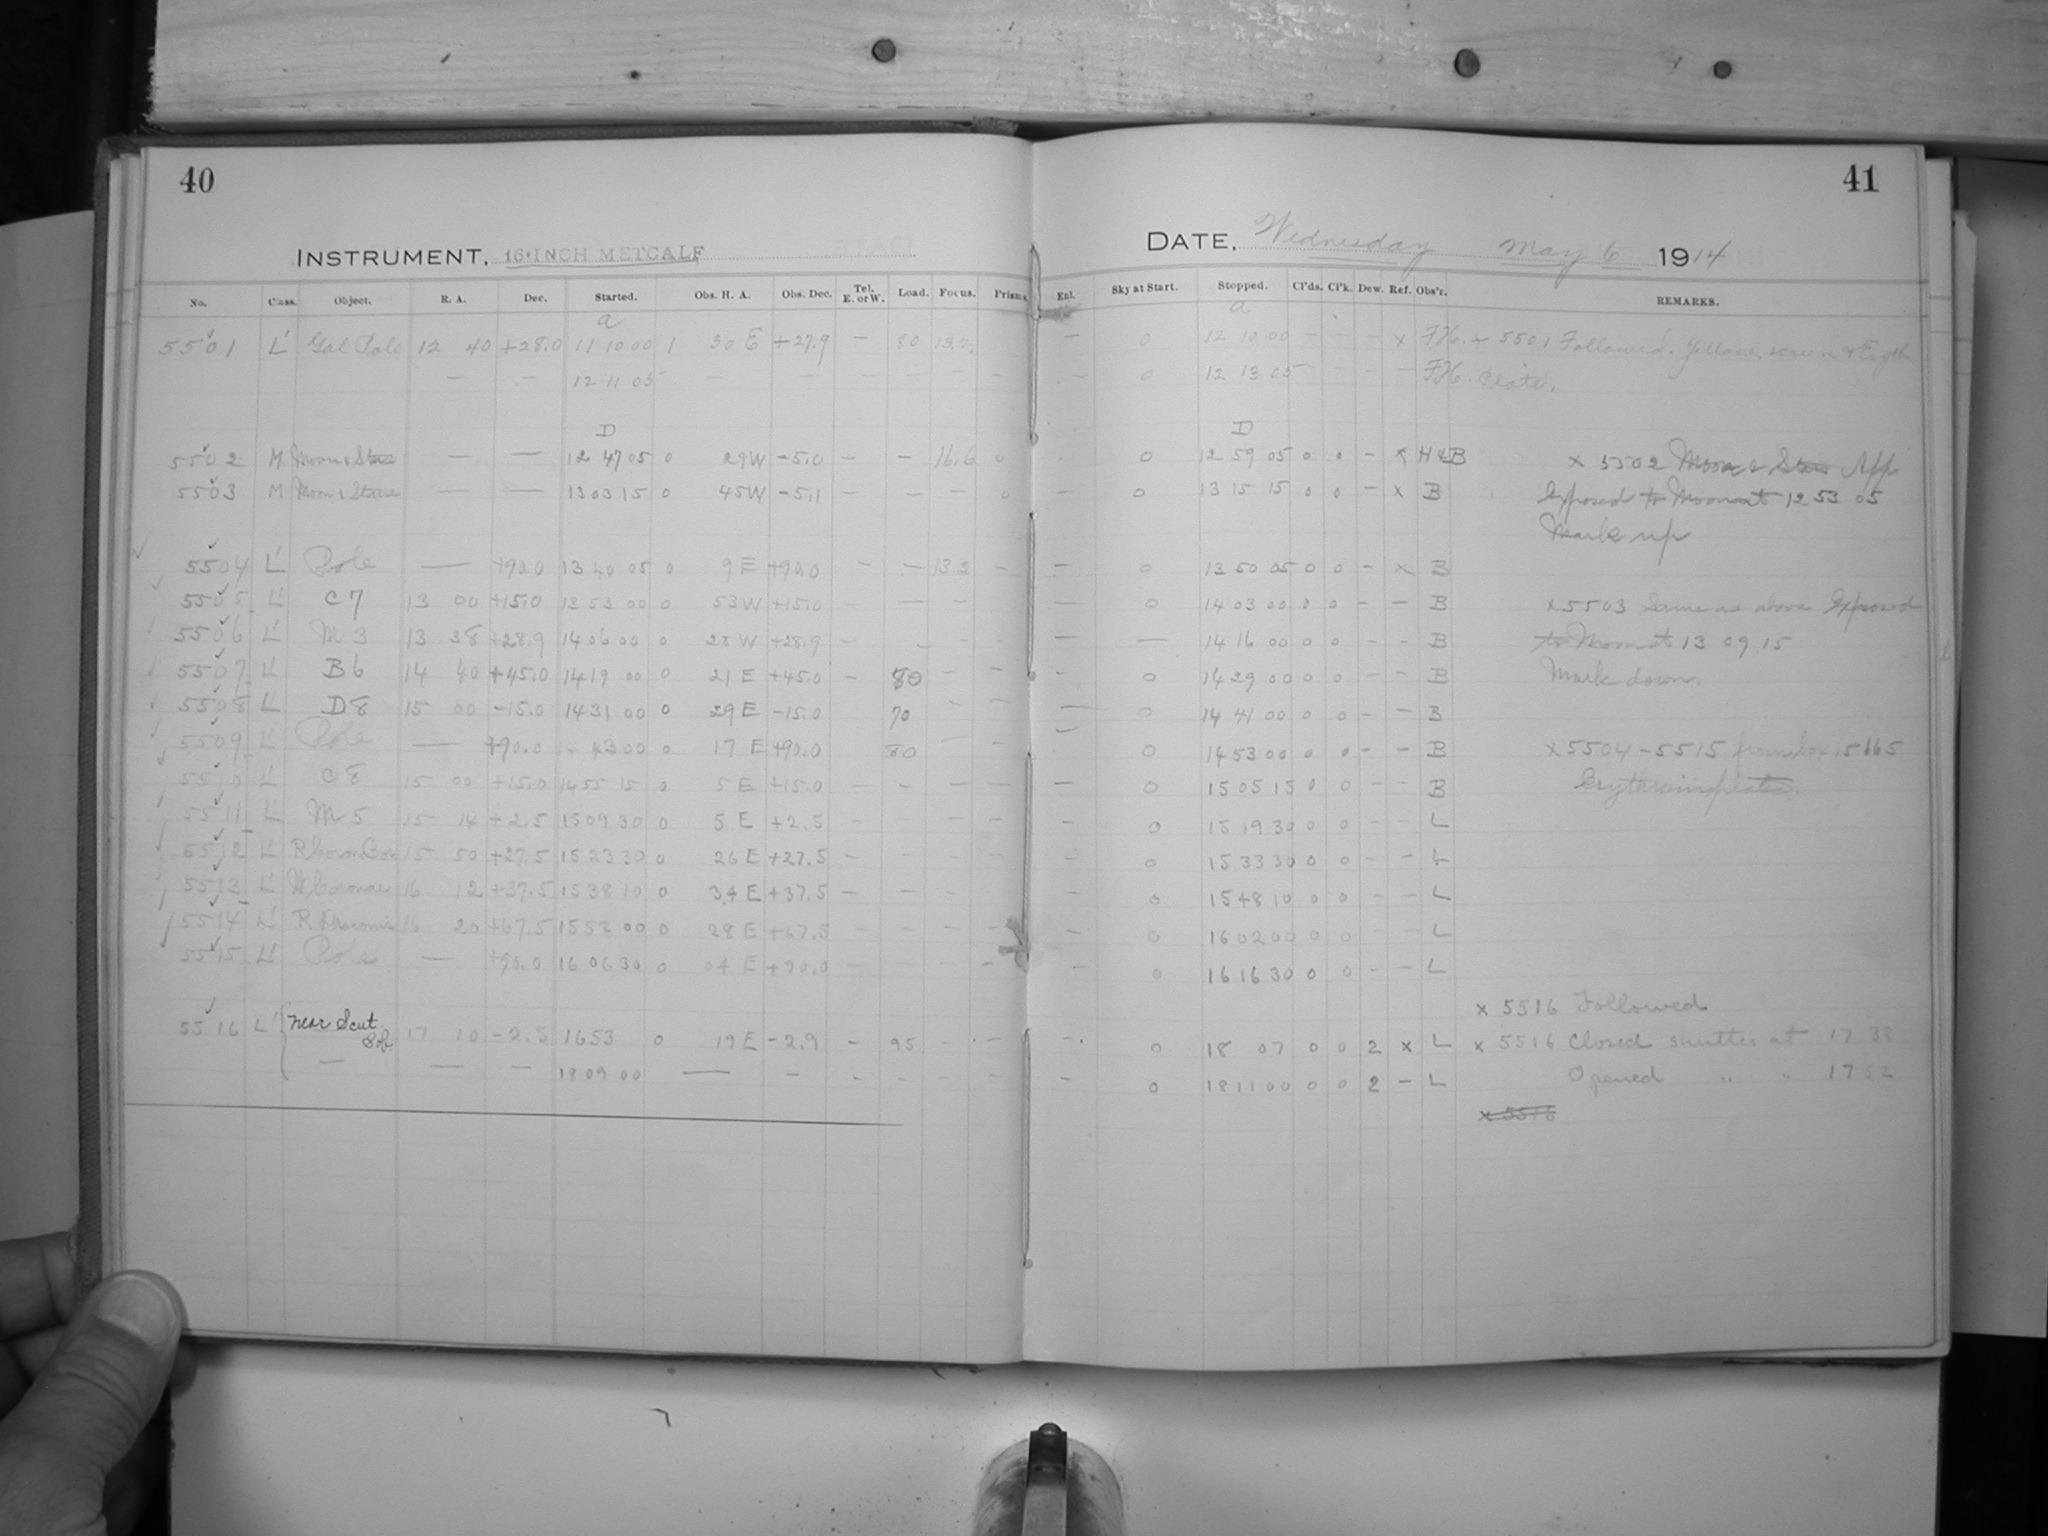 40
INSTRUMENT, 16-INCH METCALF
No. Class. Object. R. A. Dec. Started. Obs. H. A. Obs. Dec. Tel. E. or W. Load. Focus. Prism.
a
5501 L' Gal Pole 12 40 +28.0 11 10 00 1 30 E +27.9 — 80 13.2
— — 12 11 05 — — — — — —
D
5502 M Moon & Stars — — 12 47 05 0 29 W -5.0 — — 16.6 0
5503 M Moon & Stars — — 13 03 15 0 45 W -5.1 — — — 0
5504 L' Pole — +90.0 13 40 05 0 9 E +90.0 — — 13.2 —
5505 L' C 7 13 00 +15.0 13 53 00 0 53 W +15.0 — — — —
5506 L' M 3 13 38 +28.9 14 06 00 0 28 W +28.9 — — —
5507 L' B 6 14 40 +45.0 14 19 00 0 21 E +45.0 — 80 — —
5508 L' D 8 15 00 -15.0 14 31 00 0 29 E -15.0 70 — —
5509 L' Pole — +90.0 14 43 00 0 17 E +90.0 80 — —
5510 L' C 8 15 00 +15.0 14 55 15 0 5 E +15.0 — — — —
5511 L' M 5 15 14 +2.5 15 09 30 0 5 E +2.5 — — — —
5512 L' R Coron Bor 15 50 +27.5 15 23 30 0 26 E +27.5 — — — —
5513 L' W Coronae 16 12 +37.5 15 38 10 0 34 E +37.5 — — — —
5514 L' R Draconis 16 20 +67.5 15 52 00 0 28 E +67.5 — — — —
5515 L' Pole — +90.0 16 06 30 0 04 E +90.0 — — — —
5516 L' near Scut. Sob. 17 10 -2.5 16 53 0 19 E -2.9 — 95 — —
— — — 18 09 00 — — — — — —
41
DATE, Wednesday May 6 1914
Enl. Sky at Start. Stopped. Cl'ds. Cl'k. Dew. Ref. Obs'r. REMARKS.
a
— 0 12 10 00 — — — x F.H. x 5501 Followed. Yellow screen &
— 0 12 13 05 — — — — F.H. plate.
D
0 12 59 05 0 0 — x H & B x 5502 Moon & Stars App
0 13 15 15 0 0 — x B Exposed to Moon at 12 53 05
Mark up
— 0 13 50 05 0 0 — x B
— 0 14 03 00 0 0 — — B x 5503 Same as above Exposed
— — 14 16 00 0 0 — — B to Moon at 13 09 15
— 0 14 29 00 0 0 — — B Mark down.
— 0 14 41 00 0 0 — — B
— 0 14 53 00 0 0 — — B x 5504 - 5515 from box 15665
— 0 15 05 15 0 0 — — B Erythrosin plates.
— 0 15 19 30 0 0 — — L
— 0 15 33 30 0 0 — — L
— 0 15 48 10 0 0 — — L
— 0 16 02 00 0 0 — — L
— 0 16 16 30 0 0 — — L
x 5516 Followed
— 0 18 07 0 0 2 x L x 5516 Closed shutter at 17 38
— 0 18 11 00 0 0 2 — L Opened " " 17 52
x 5516